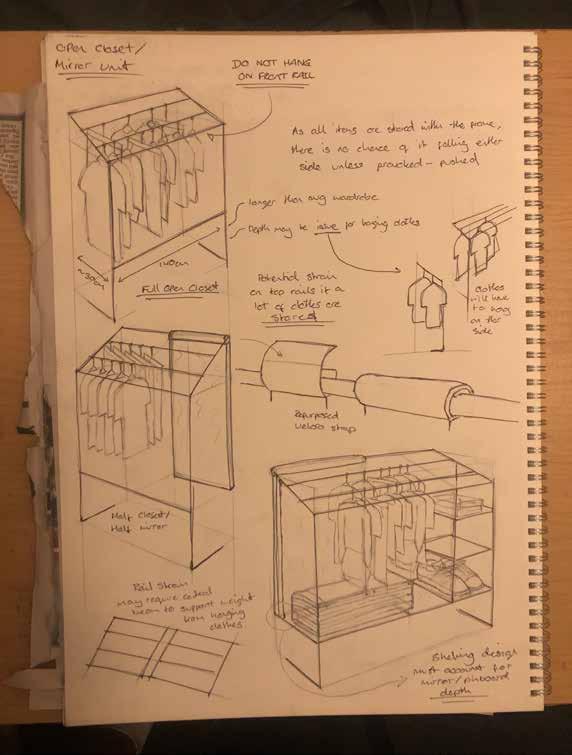 Open Closet/
Mirror Unit
DO NOT HANG
ON FRONT RAIL
As all items are stored within the frame,
there is no chance of it falling either
side unless provoked - pushed
longer than avg wardrobe
Depth may be issue for hanging clothes
~50cm
140cm
Full Open Closet
Potential strain
on top rails if a
lot of clothes are
stored
Clothes
will have
to hang
on the
side
Repurposed
velcro strap
Half Closet/
Half Mirror
Rail Strain
may require central
beam to support weight
from hanging
clothes
Shelving design
must account for
mirror/pinboard
depth